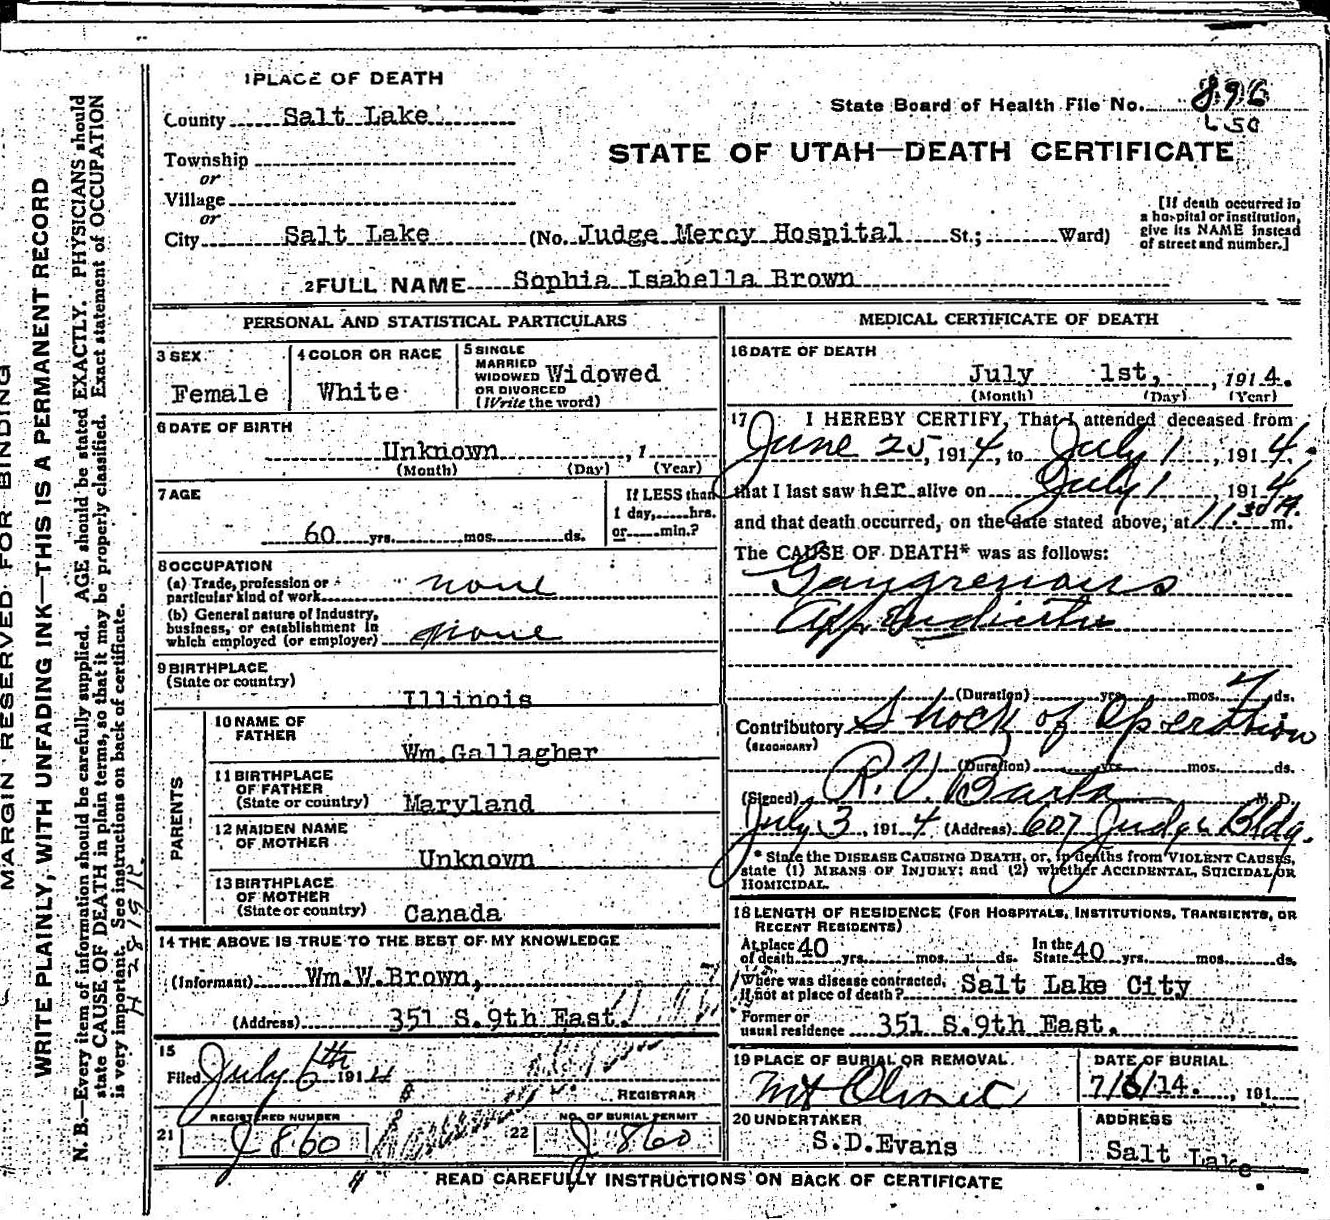 MARGIN RESERVED FOR BINDING
WRITE PLAINLY, WITH UNFADING INK—THIS IS A PERMANENT RECORD
N. B.—Every item of information should be carefully supplied. AGE should be stated EXACTLY. PHYSICIANS should
state CAUSE OF DEATH in plain terms, so that it may be properly classified. Exact statement of OCCUPATION
is very important. See instructions on back of certificate.
1 PLACE OF DEATH
County Salt Lake
State Board of Health File No. 896
Township
or
STATE OF UTAH—DEATH CERTIFICATE
Village
or
City Salt Lake (No. Judge Mercy Hospital St.; Ward)
[If death occurred in
a hospital or institution,
give its NAME instead
of street and number.]
2 FULL NAME Sophia Isabella Brown
PERSONAL AND STATISTICAL PARTICULARS
3 SEX
Female
4 COLOR OR RACE
White
5 SINGLE
MARRIED
WIDOWED
OR DIVORCED
(Write the word)
Widowed
6 DATE OF BIRTH
Unknown , 1
(Month) (Day) (Year)
7 AGE
60 yrs. mos. ds.
If LESS than
1 day, hrs.
or min.?
8 OCCUPATION
(a) Trade, profession or
particular kind of work none
(b) General nature of Industry,
business, or establishment in
which employed (or employer) none
9 BIRTHPLACE
(State or country)
Illinois
PARENTS
10 NAME OF
FATHER
Wm. Gallagher
11 BIRTHPLACE
OF FATHER
(State or country) Maryland
12 MAIDEN NAME
OF MOTHER
Unknown
13 BIRTHPLACE
OF MOTHER
(State or country) Canada
14 THE ABOVE IS TRUE TO THE BEST OF MY KNOWLEDGE
(Informant) Wm.W.Brown,
(Address) 351 S.9th East.
15
Filed July 6th 1914
REGISTRAR
REGISTERED NUMBER
21 J 860
NO. OF BURIAL PERMIT
22 J 860
MEDICAL CERTIFICATE OF DEATH
16 DATE OF DEATH
July 1st, , 1914.
(Month) (Day) (Year)
17 I HEREBY CERTIFY, That I attended deceased from
June 25, 1914, to July 1, 1914.
that I last saw her alive on July 1, 1914
and that death occurred, on the date stated above, at 11.30 A. m.
The CAUSE OF DEATH* was as follows:
Gangrenous
Appendicitis
(Duration) yrs. mos. 7 ds.
Contributory Shock of Operation
(SECONDARY)
(Duration) yrs. mos. ds.
(Signed) R. V. M. D.
July 3, 1914 (Address) 607 Judge Bldg.
* State the DISEASE CAUSING DEATH, or, in deaths from VIOLENT CAUSES,
state (1) MEANS OF INJURY; and (2) whether ACCIDENTAL, SUICIDAL OR
HOMICIDAL.
18 LENGTH OF RESIDENCE (FOR HOSPITALS, INSTITUTIONS, TRANSIENTS, OR
RECENT RESIDENTS)
At place of death 40 yrs. mos. ds. In the State 40 yrs. mos. ds.
Where was disease contracted,
If not at place of death? Salt Lake City
Former or
usual residence 351 S.9th East.
19 PLACE OF BURIAL OR REMOVAL
Mt Olivet
DATE OF BURIAL
7/6/14. , 191
20 UNDERTAKER
S.D.Evans
ADDRESS
Salt Lake.
READ CAREFULLY INSTRUCTIONS ON BACK OF CERTIFICATE